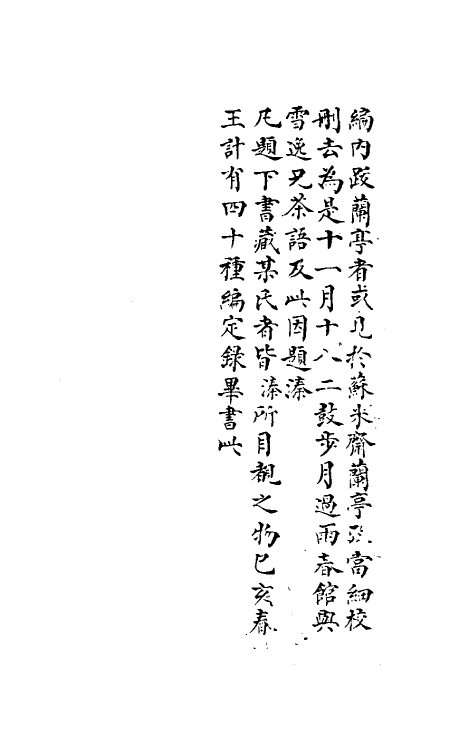 編内跋蘭亭者或見於蘇米齋蘭亭攷當細校
刪去為是十一月十八二鼓步月過雨春館與
雪逸兄茶語及此因題溱
凡題下書藏某氏者皆溱所目覩之物己亥春
王計有四十種編定錄畢書此